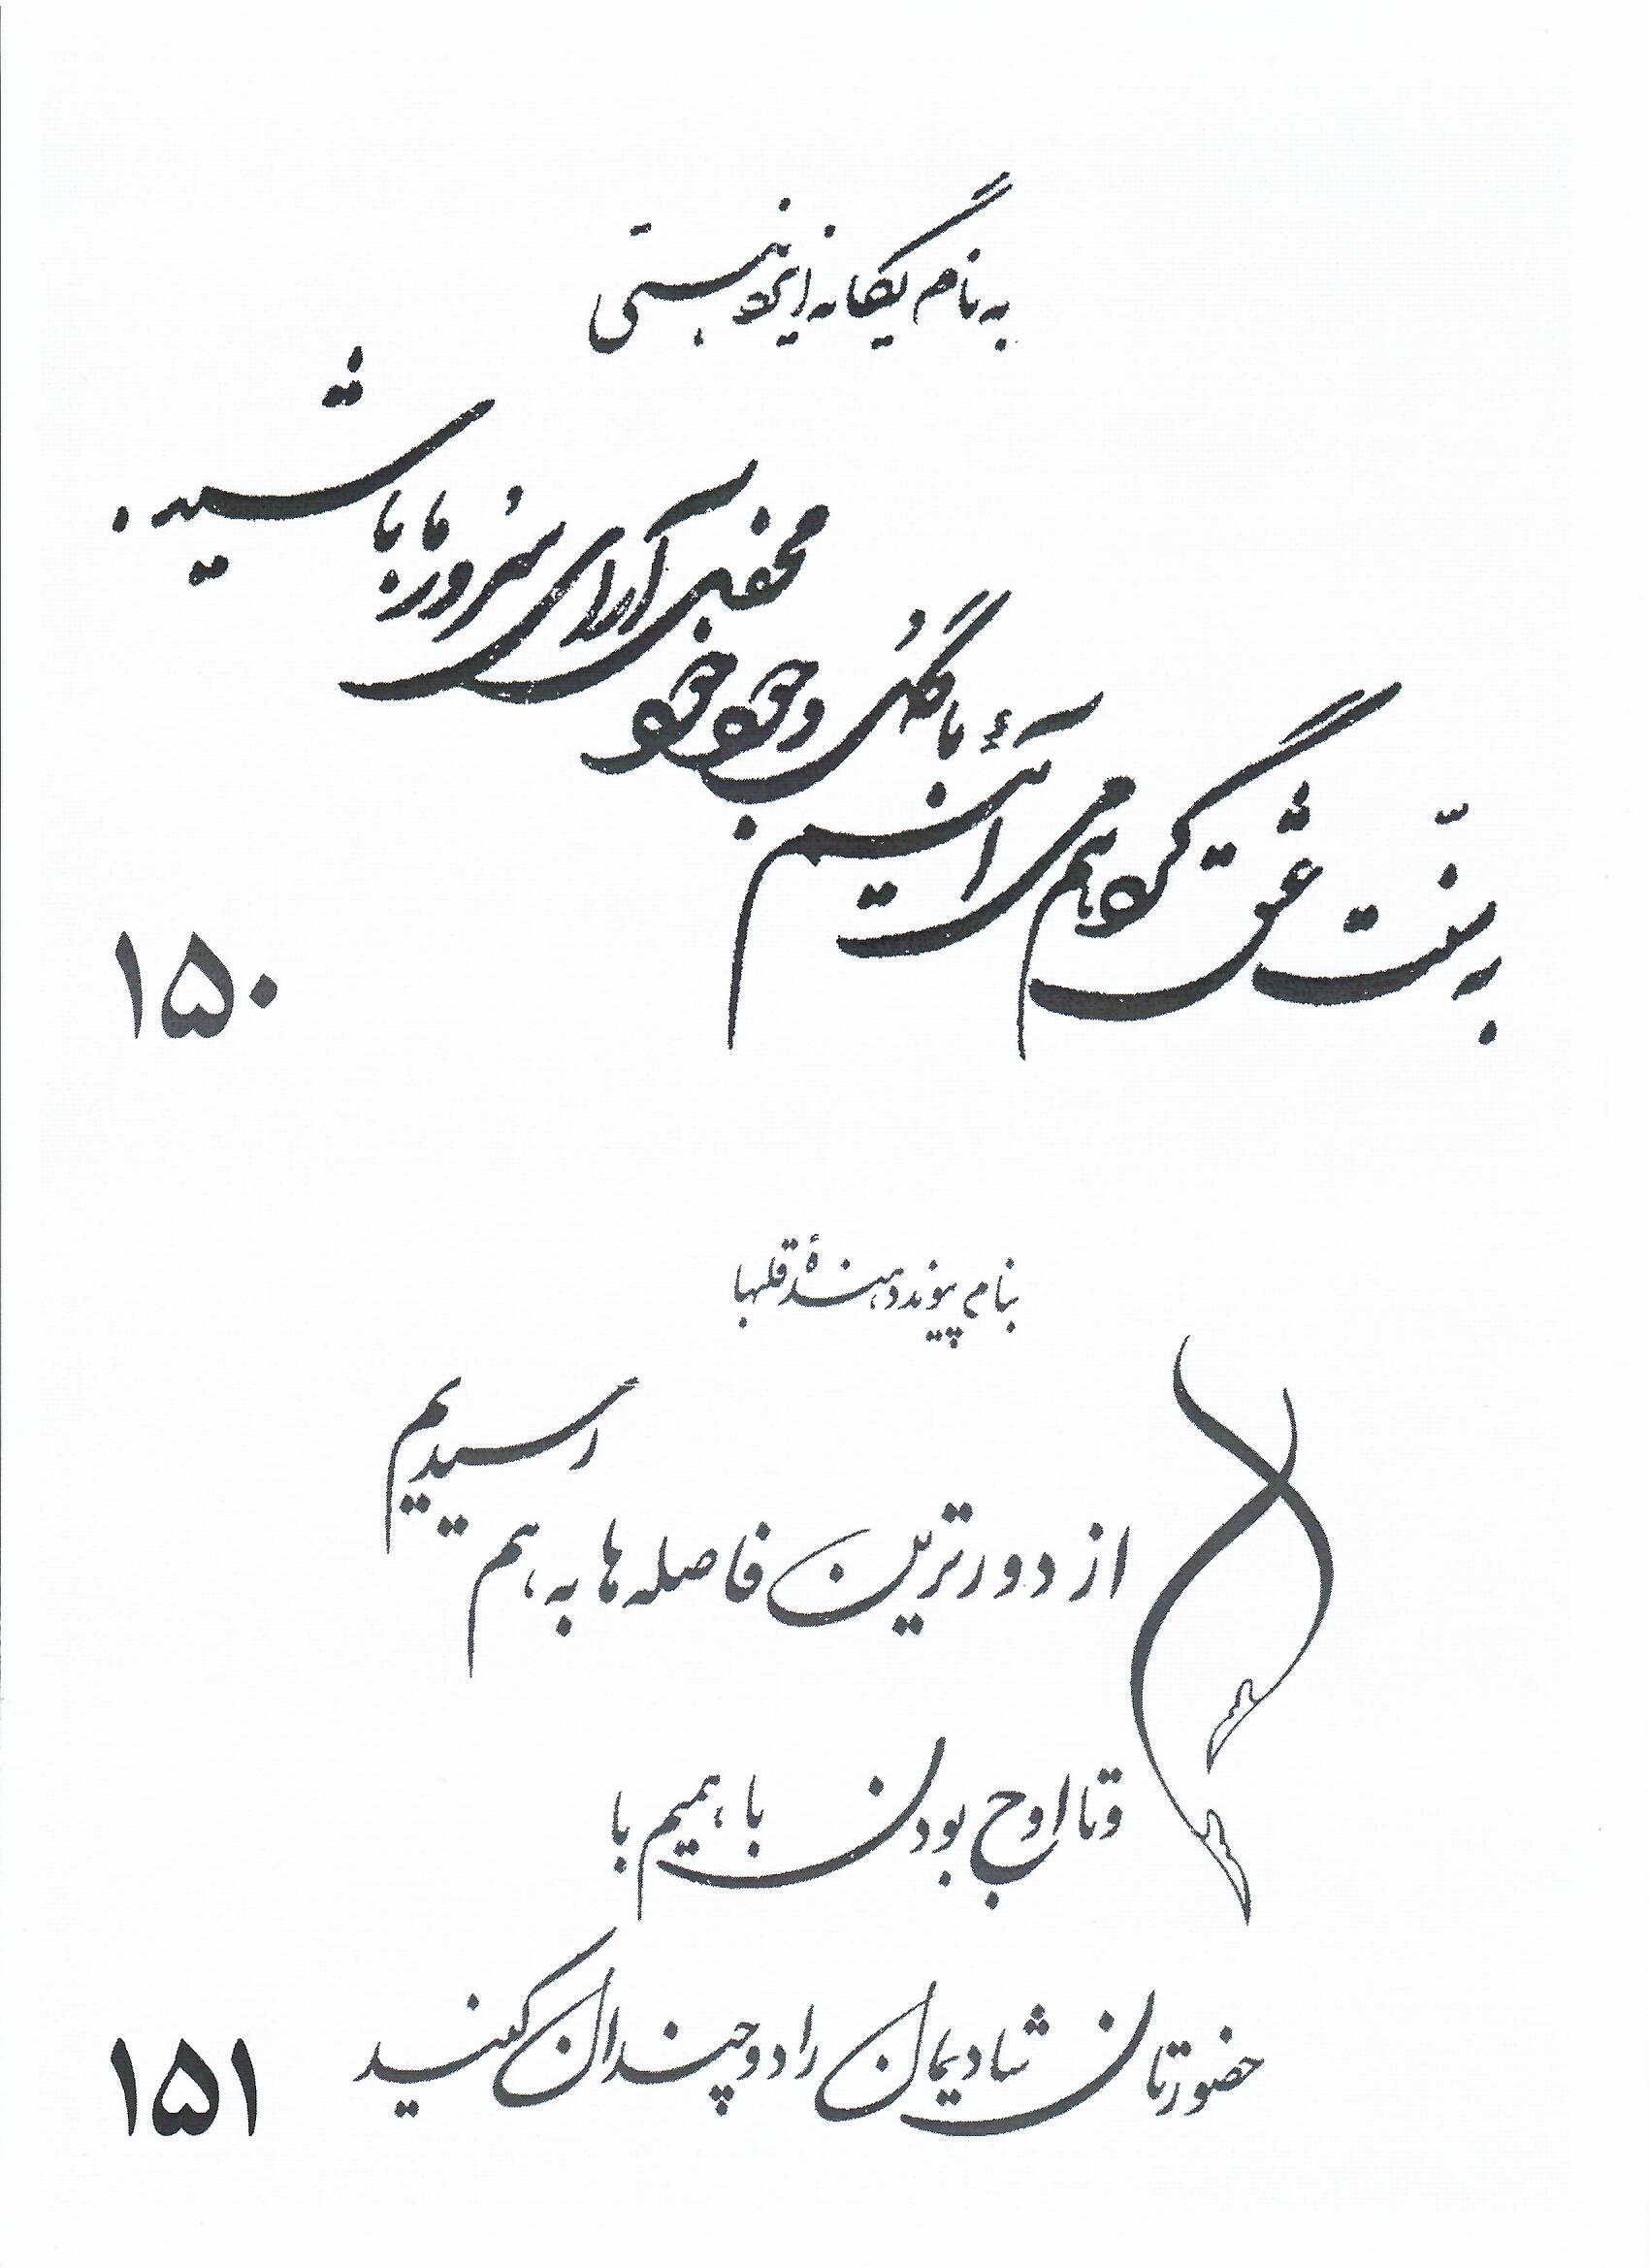 به نام یگانه ایزد هستی
به سنّت عشق گرد هم می آئیم
با گُل وجود خود
محفل آرای سُرور ما باشید.
۱۵۰
بنام پیوند دهندهٔ قلبها
از دورترین فاصله ها به هم رسیدیم
و تا اوج بودن با همیم با
حضورتان شادیمان را دو چندان کنید
۱۵۱